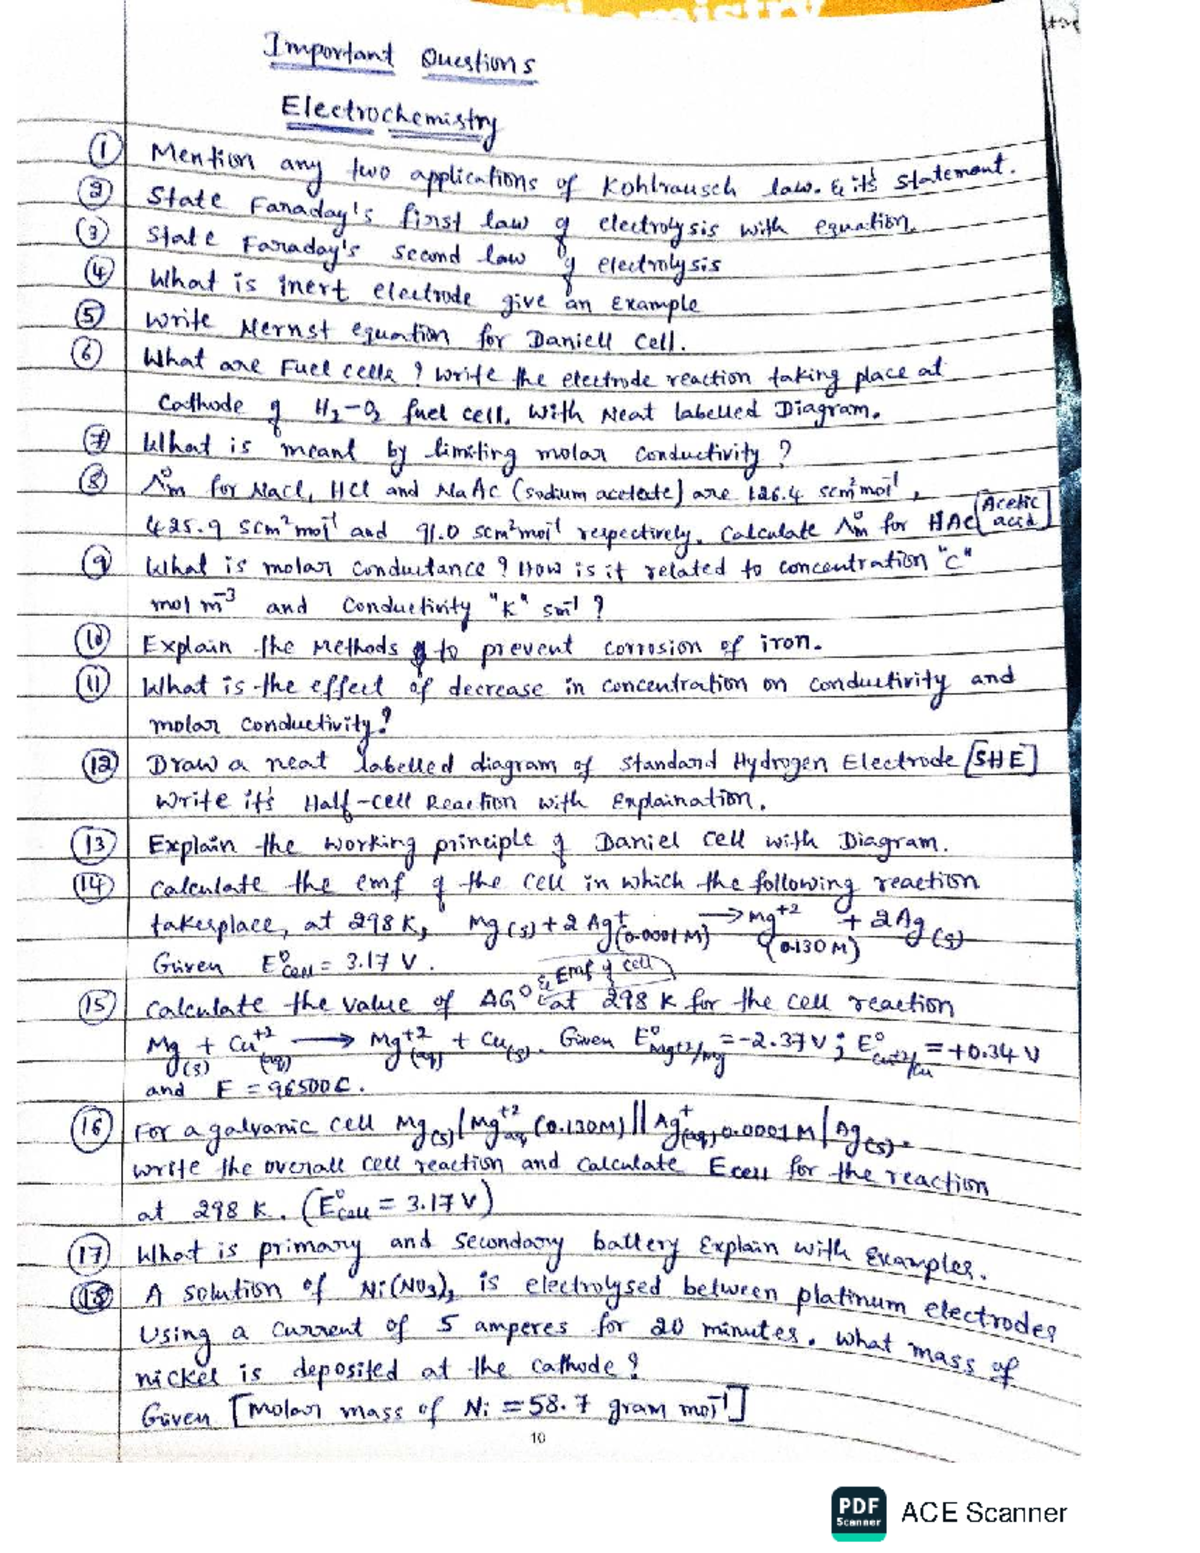 Chemistry
Important Questions
Electrochemistry
① Mention any two applications of Kohlrausch law. & it's statement.
② State Faraday's first law of electrolysis with equation.
③ State Faraday's second law of electrolysis
④ What is inert electrode give an Example
⑤ Write Nernst equation for Daniell Cell.
⑥ What are Fuel cells ? Write the electrode reaction taking place at
Cathode of H₂-O₂ fuel cell. With Neat labelled Diagram.
⑦ What is meant by limiting molar conductivity ?
⑧ Λ°m for NaCl, HCl and NaAc (sodium acetate) are 126.4 scm²mol⁻¹,
425.9 scm²mol⁻¹ and 91.0 scm²mol⁻¹ respectively. Calculate Λ°m for HAc [Acetic acid]
⑨ What is molar conductance ? How is it related to concentration "C"
mol m⁻³ and conductivity "K" sm⁻¹ ?
⑩ Explain the Methods to prevent corrosion of iron.
⑪ What is the effect of decrease in concentration on conductivity and
molar conductivity?
⑫ Draw a neat labelled diagram of Standard Hydrogen Electrode [SHE]
Write it's Half-cell Reaction with Explaination.
⑬ Explain the working principle of Daniel cell with Diagram.
⑭ Calculate the emf of the cell in which the following reaction
takesplace, at 298 K, Mg(s) + 2 Ag⁺(0.0001 M) → Mg⁺²(0.130 M) + 2Ag(s)
Given E°cell = 3.17 V.
⑮ Calculate the value of ΔG° & Emf of cell at 298 K for the cell reaction
Mg(s) + Cu⁺²(aq) → Mg⁺²(aq) + Cu(s). Given E°Mg⁺²/Mg = -2.37 V ; E°Cu⁺²/Cu = +0.34 V
and F = 96500 C.
⑯ For a galvanic cell Mg(s) | Mg⁺²aq (0.130M) || Ag⁺(aq) 0.0001 M | Ag(s).
write the overall cell reaction and calculate Ecell for the reaction
at 298 K. (E°cell = 3.17 V)
⑰ What is primary and secondary battery Explain with Examples.
⑱ A solution of Ni(NO₃)₂ is electrolysed between platinum electrodes
Using a current of 5 amperes for 20 minutes. What mass of
nickel is deposited at the cathode ?
Given [Molar mass of Ni = 58.7 gram mol⁻¹]
10
PDF
Scanner
ACE Scanner